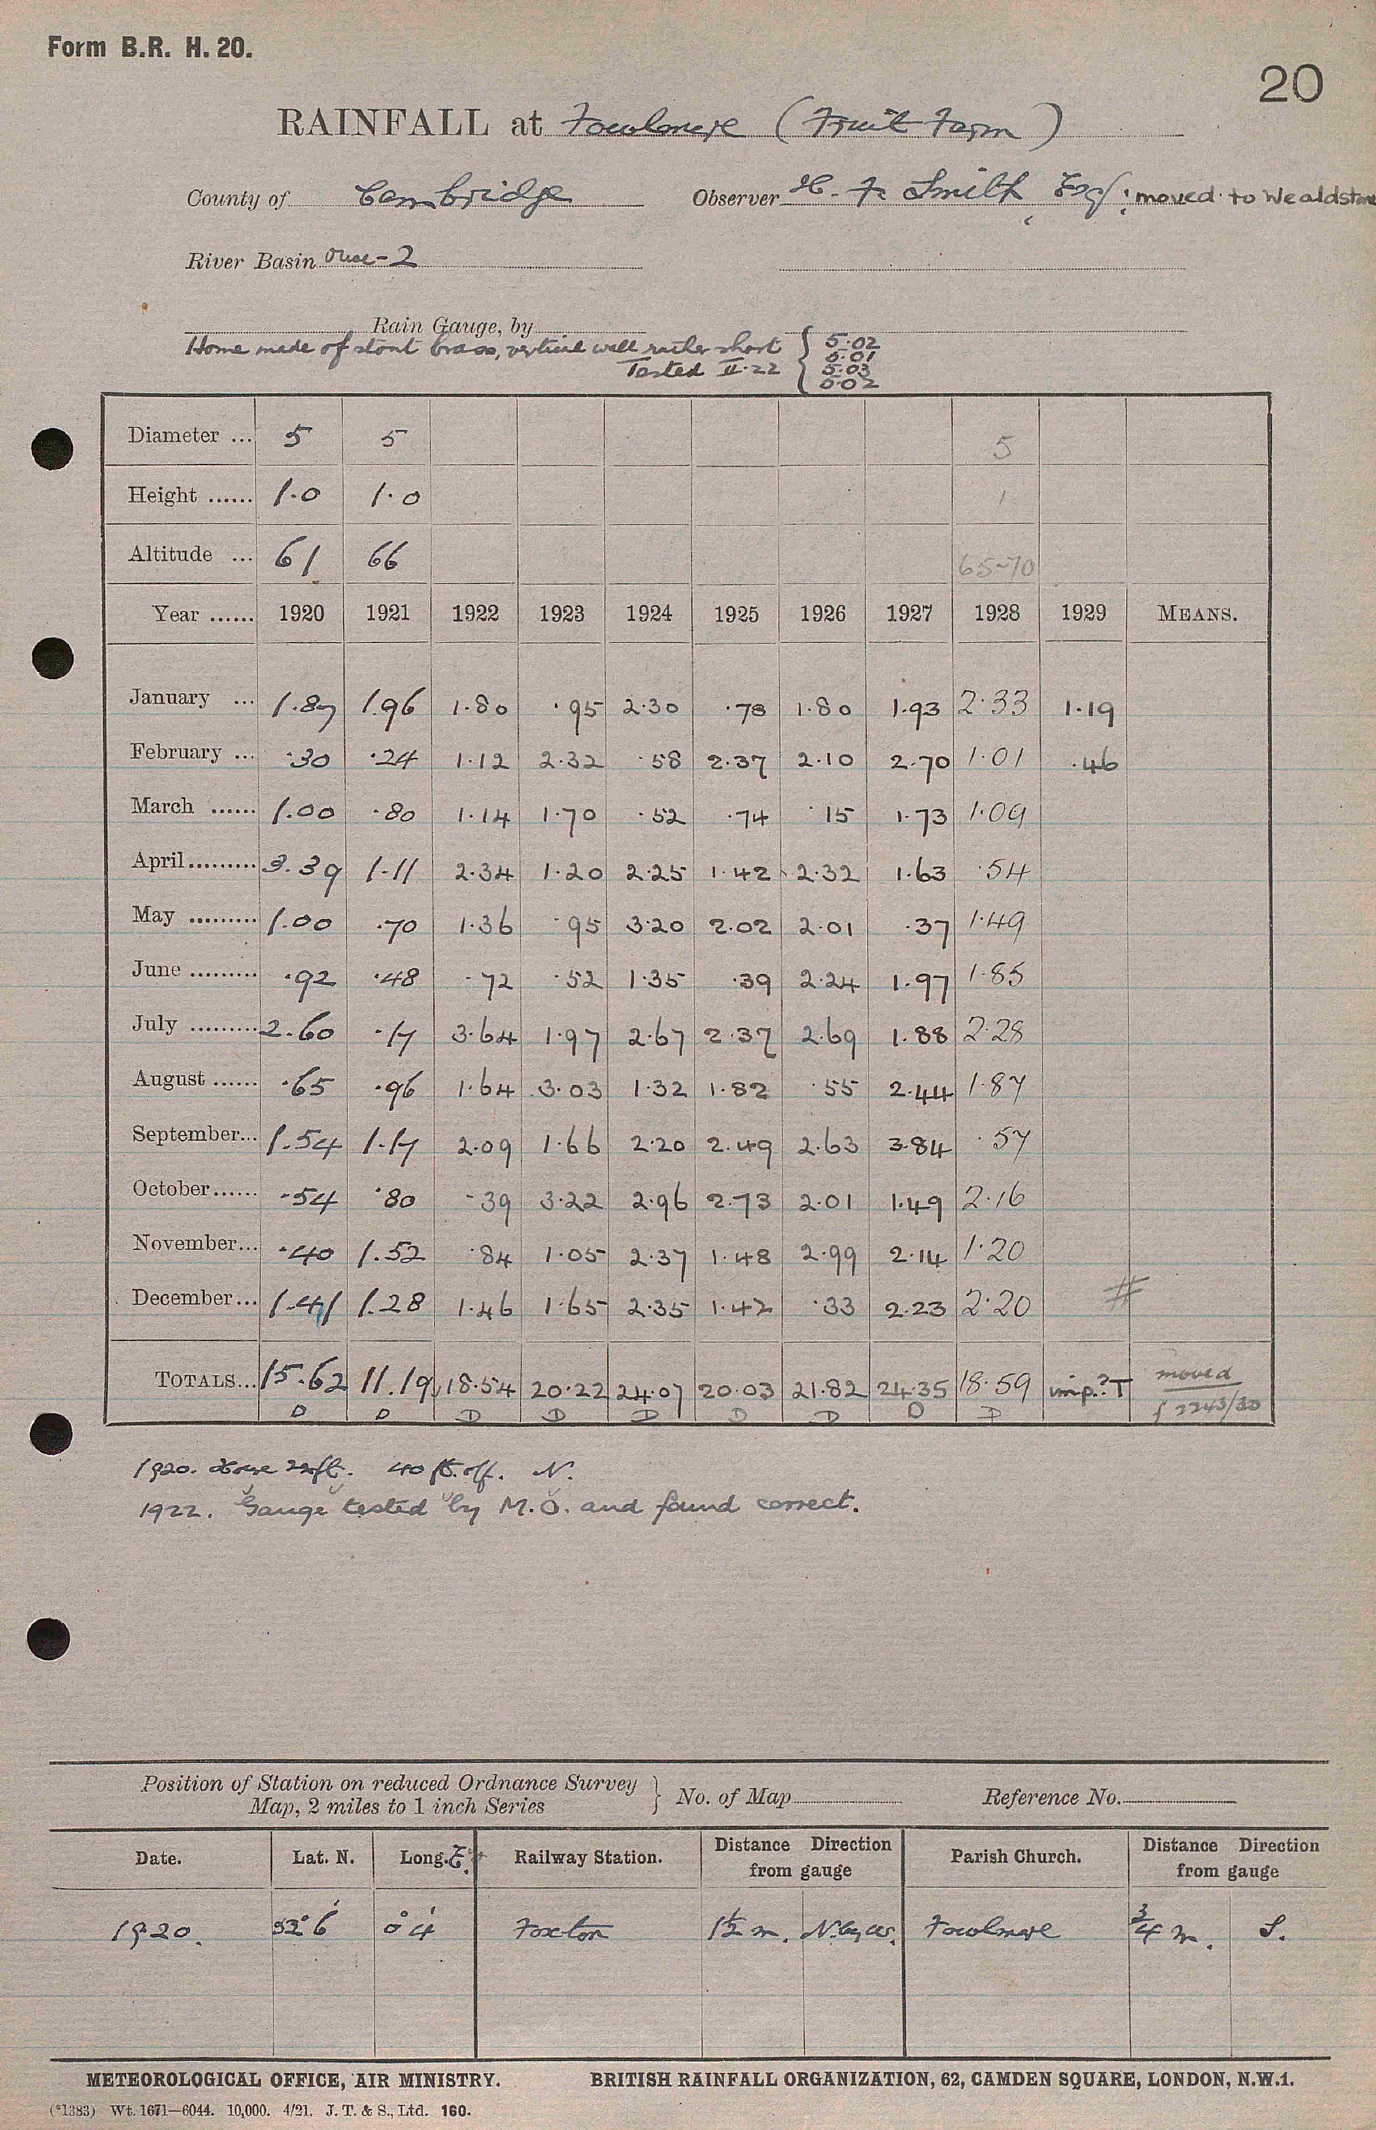 Form B.R. H. 20.
20
RAINFALL at Fowlmere (Fruit Farm)
County of Cambridge Observer H. F. Smith, Esq; moved to Wealdstone
River Basin Ouse-2
Rain Gauge, by
Home made of stout brass, vertical wall rather short { 5.02
Tested II.22 5.01
5.03
5.02
Diameter ... 5 5 5
Height ...... 1.0 1.0 1
Altitude ... 61 66 65-70
Year ...... 1920 1921 1922 1923 1924 1925 1926 1927 1928 1929 MEANS.
January ... 1.87 1.96 1.80 .95 2.30 .78 1.80 1.93 2.33 1.19
February ... .30 .24 1.12 2.32 .58 2.37 2.10 2.70 1.01 .46
March ...... 1.00 .80 1.14 1.70 .52 .74 .15 1.73 1.09
April ......... 3.39 1.11 2.34 1.20 2.25 1.42 2.32 1.63 .54
May ......... 1.00 .70 1.36 .95 3.20 2.02 2.01 .37 1.49
June ......... .92 .48 .72 .52 1.35 .39 2.24 1.97 1.85
July ......... 2.60 .17 3.64 1.97 2.67 2.37 2.69 1.88 2.28
August ...... .65 .96 1.64 3.03 1.32 1.82 .55 2.44 1.87
September... 1.54 1.17 2.09 1.66 2.20 2.49 2.63 3.84 .57
October...... .54 .80 .39 3.22 2.96 2.73 2.01 1.49 2.16
November... .40 1.52 .84 1.05 2.37 1.48 2.99 2.14 1.20
December... 1.41 1.28 1.46 1.65 2.35 1.42 .33 2.23 2.20 #
TOTALS... 15.62 11.19 18.54 20.22 24.07 20.03 21.82 24.35 18.59 imp.?T moved
D D D D D D D D D 2243/30
1920. House 22ft. 40 ft. off. N.
1922. Gauge tested by M.O. and found correct.
Position of Station on reduced Ordnance Survey } No. of Map Reference No.
Map, 2 miles to 1 inch Series
Date. Lat. N. Long. E. Railway Station. Distance Direction from gauge Parish Church. Distance Direction from gauge
1920. 52° 6' 0° 4' Foxton 1½ m. N. by W. Fowlmere ¾ m. S.
METEOROLOGICAL OFFICE, AIR MINISTRY. BRITISH RAINFALL ORGANIZATION, 62, CAMDEN SQUARE, LONDON, N.W.1.
(*1383) Wt. 1671—6044. 10,000. 4/21. J. T. & S., Ltd. 160.